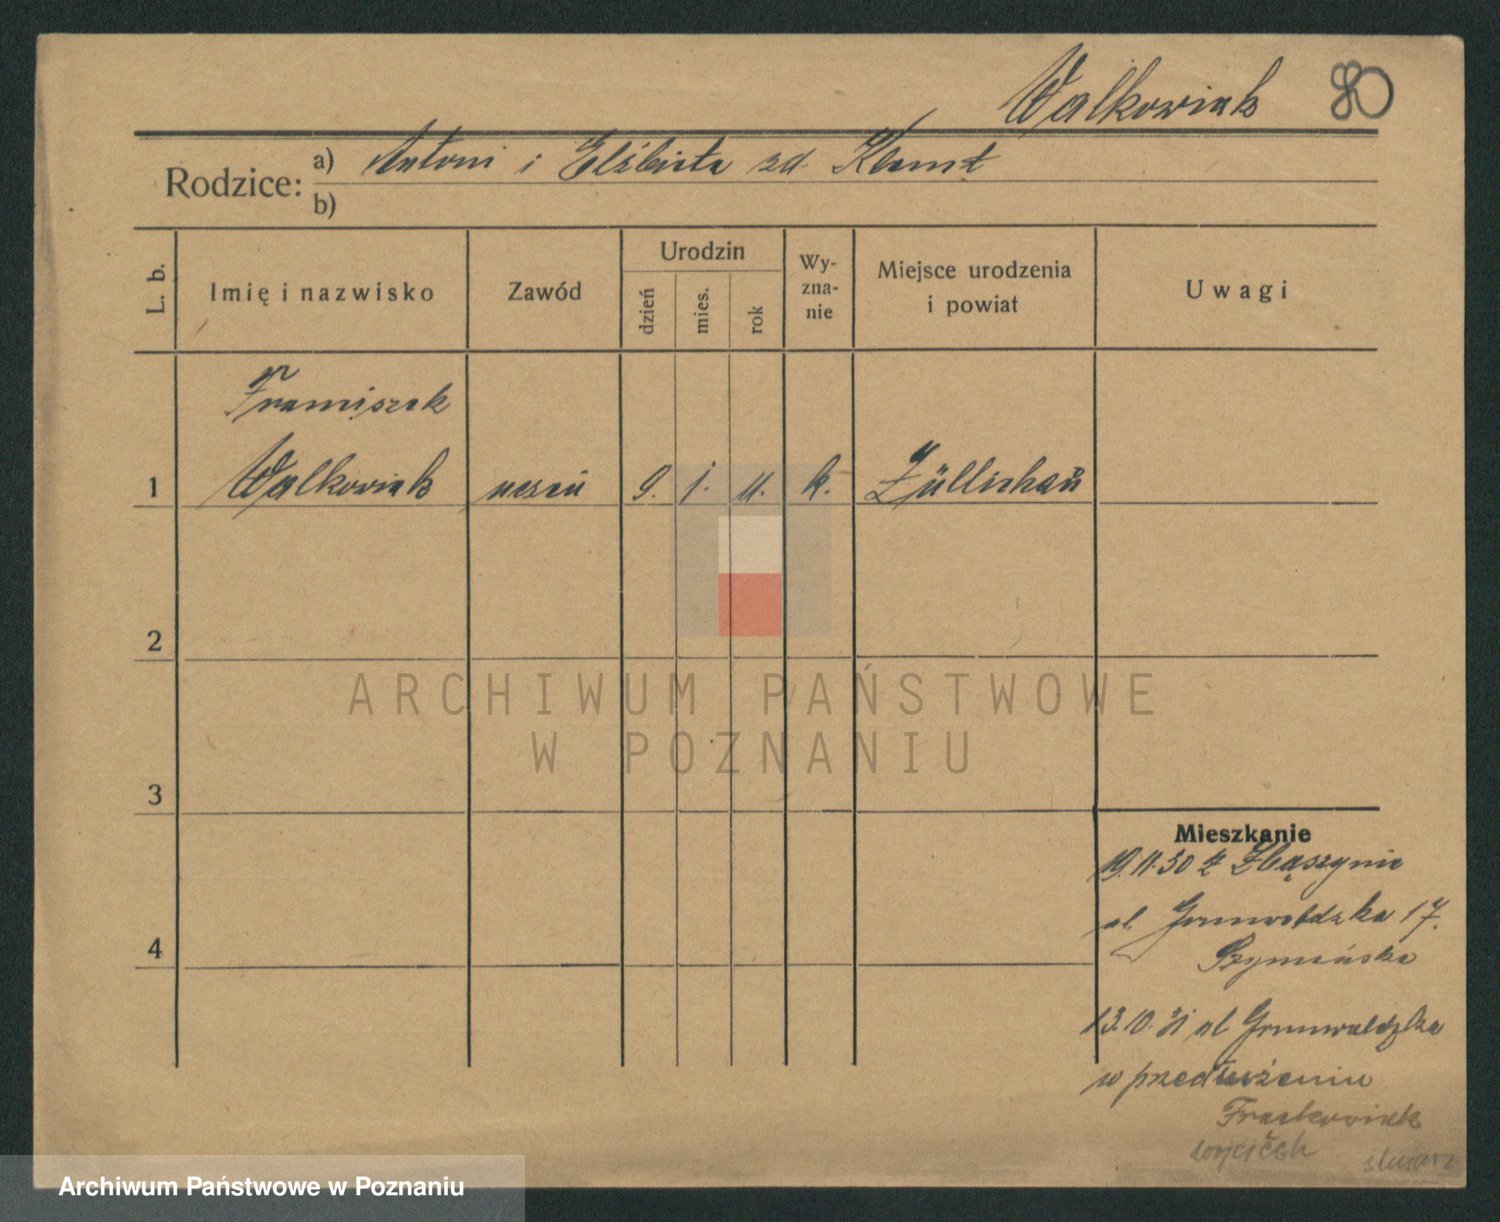 Walkowiak 80
Rodzice: a) Antoni i Elżbieta zd. Klemt
b)
L. b.
Imię i nazwisko
Zawód
Urodzin
dzień
mies.
rok
Wy-
zna-
nie
Miejsce urodzenia
i powiat
Uwagi
Franciszek
1 Walkowiak uczeń 9. 1. 11. k. Züllichau
2
3
4
ARCHIWUM PAŃSTWOWE
W POZNANIU
Mieszkanie
19.11.30 z Zbąszynia
ul. Grunwaldzka 17.
Szymańska
13.10.31 ul Grunwaldzka
w przedłużeniu
Frackowiak
Wojciech ślusarz
Archiwum Państwowe w Poznaniu